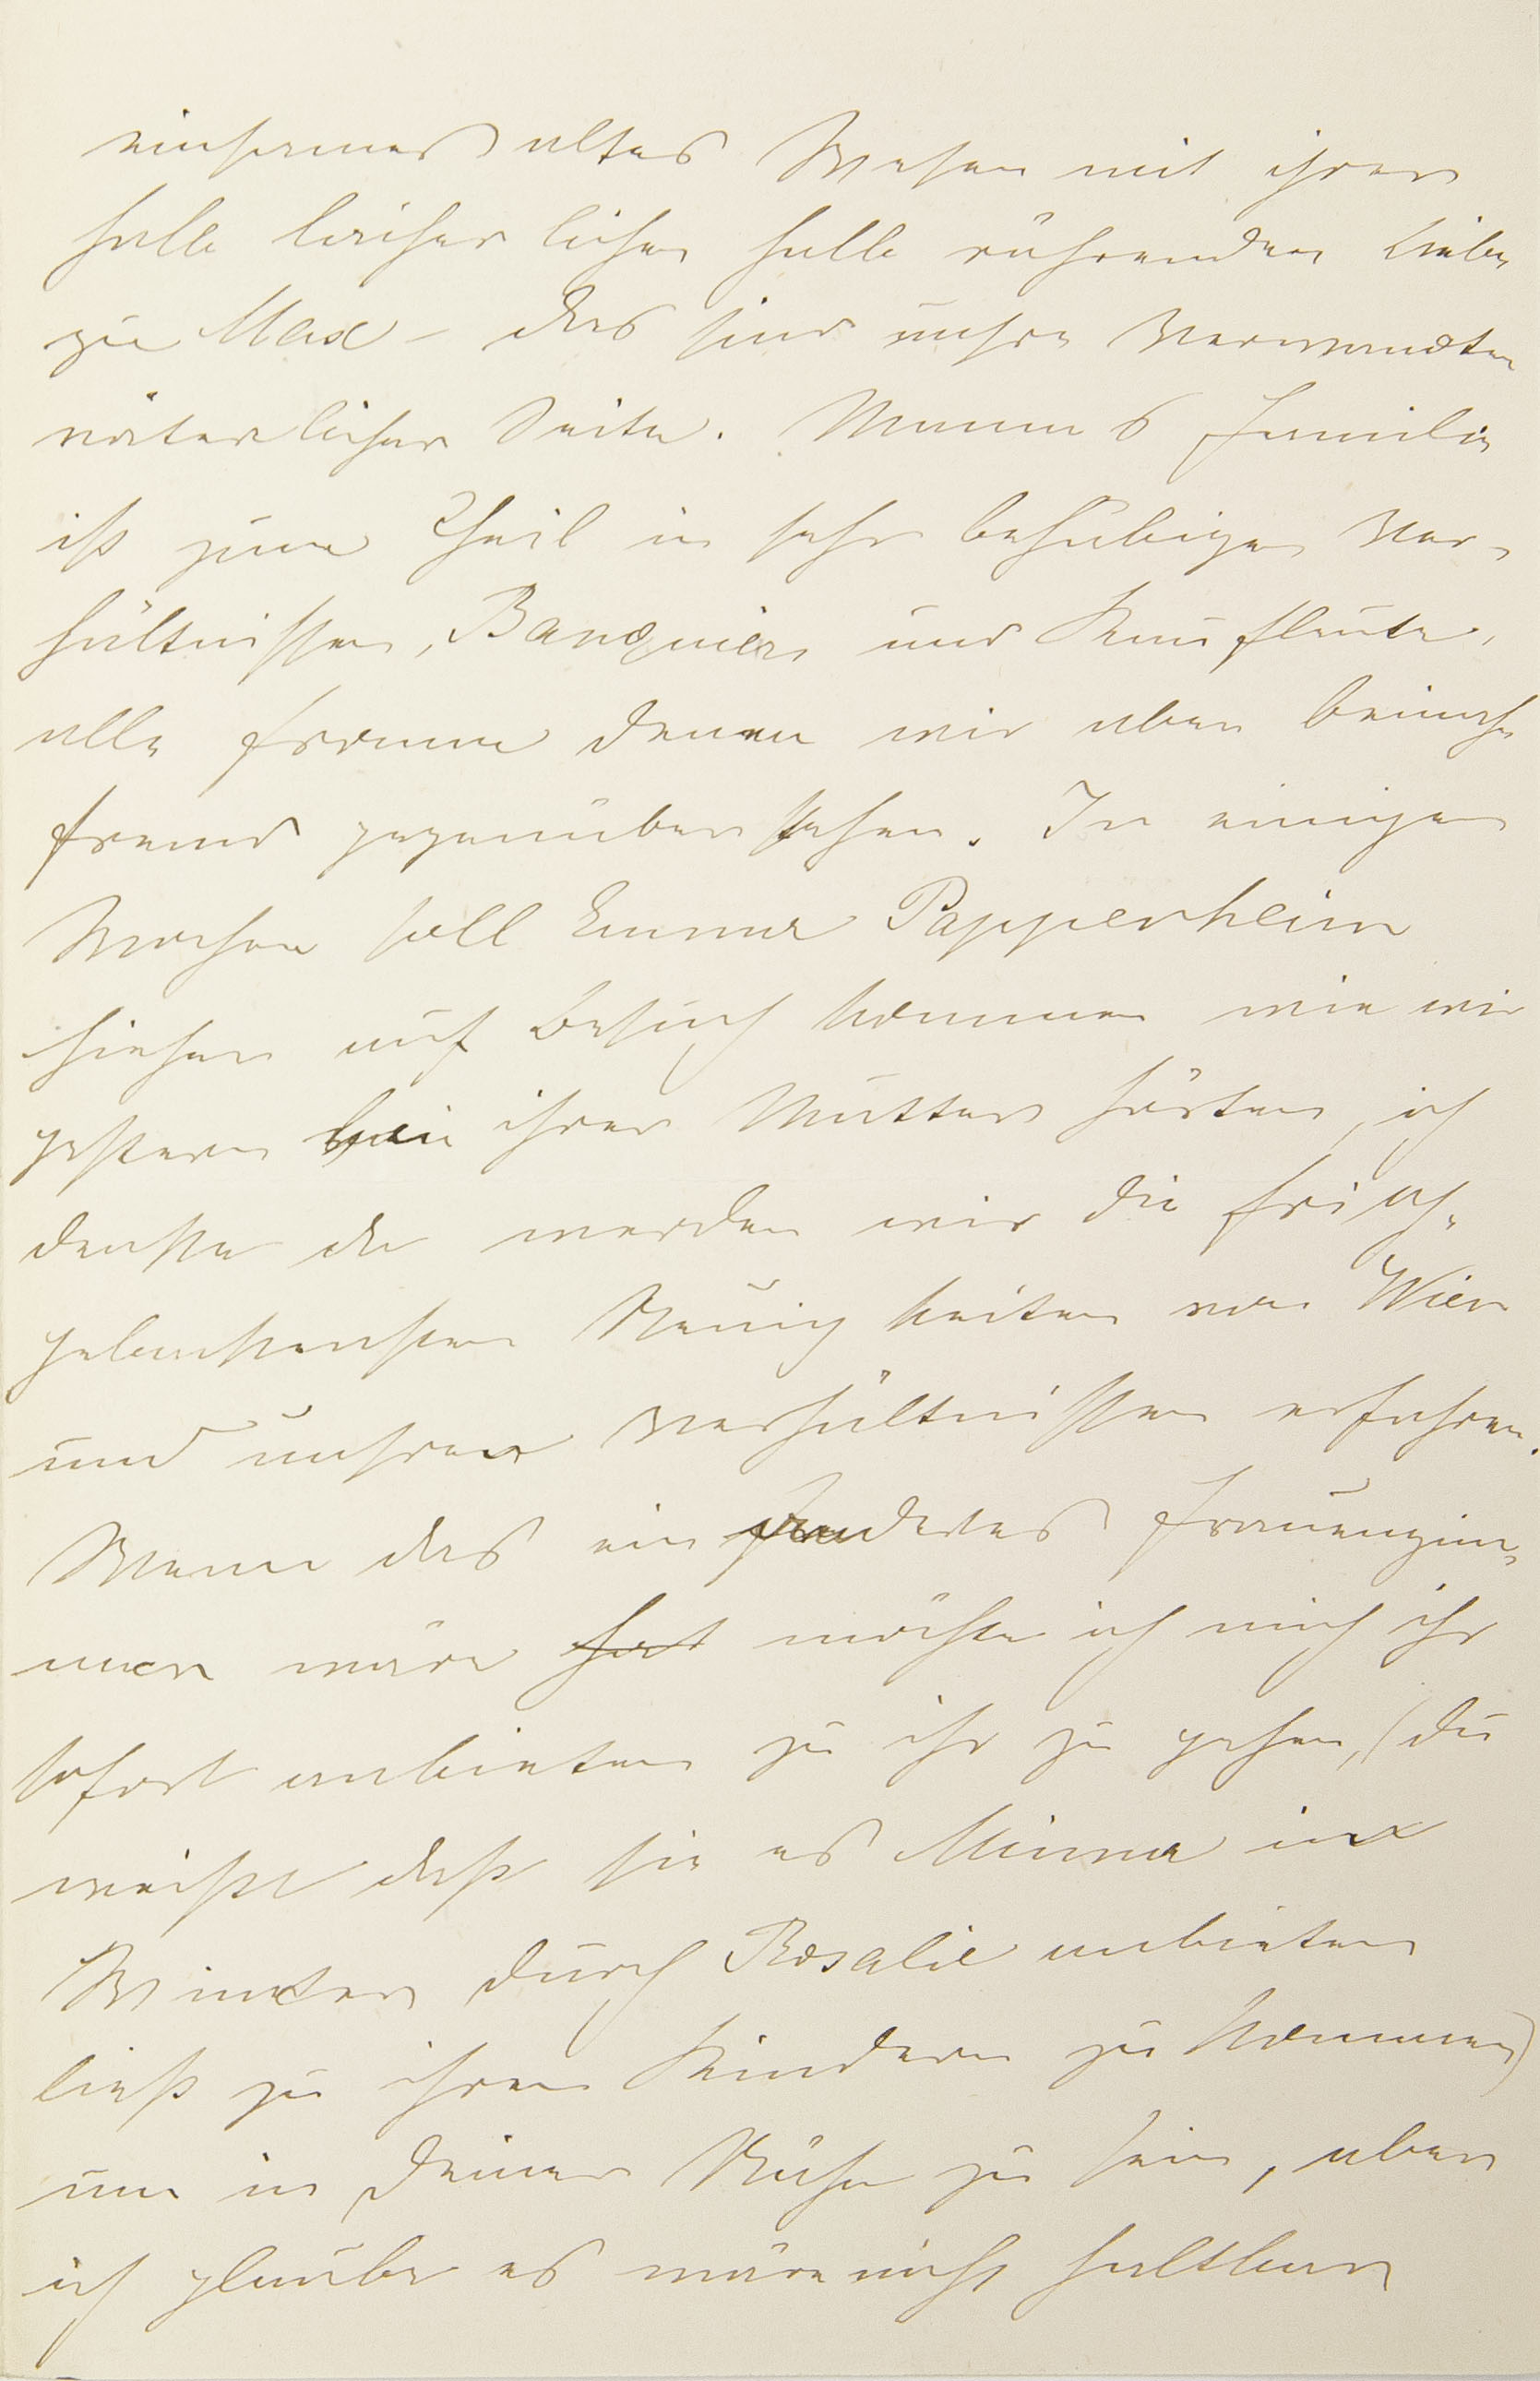 einsames altes Wesen mit ihrer
halb lächerlichen halb rührenden Liebe
zu Max – das sind unsre Verwandten
väterlicher Seite. Mama's Familie
ist zum Theil in sehr behäbigen Ver-
hältnissen, Banquiers und Kaufleute,
alle fromm denen wir aber beinahe
fremd gegenüber stehen. In einigen
Wochen soll Emma Pappenheim
hieher auf Besuch kommen wie wir
gestern bei ihrer Mutter hörten, ich
denke da werden wir die frisch-
gebackensten Neuigkeiten von Wien
und unsren Verhältnissen erfahren.
Wenn das ein anderes Frauenzim-
mer wäre hat möchte ich mich ihr
sofort anbieten zu ihr zu gehen, (du
weißt daß sie es Minna im
Winter durch Rosalie anbieten
ließ zu ihren Kindern zu kommen)
um in Deiner Nähe zu sein, aber
ich glaube es wäre nicht haltbar